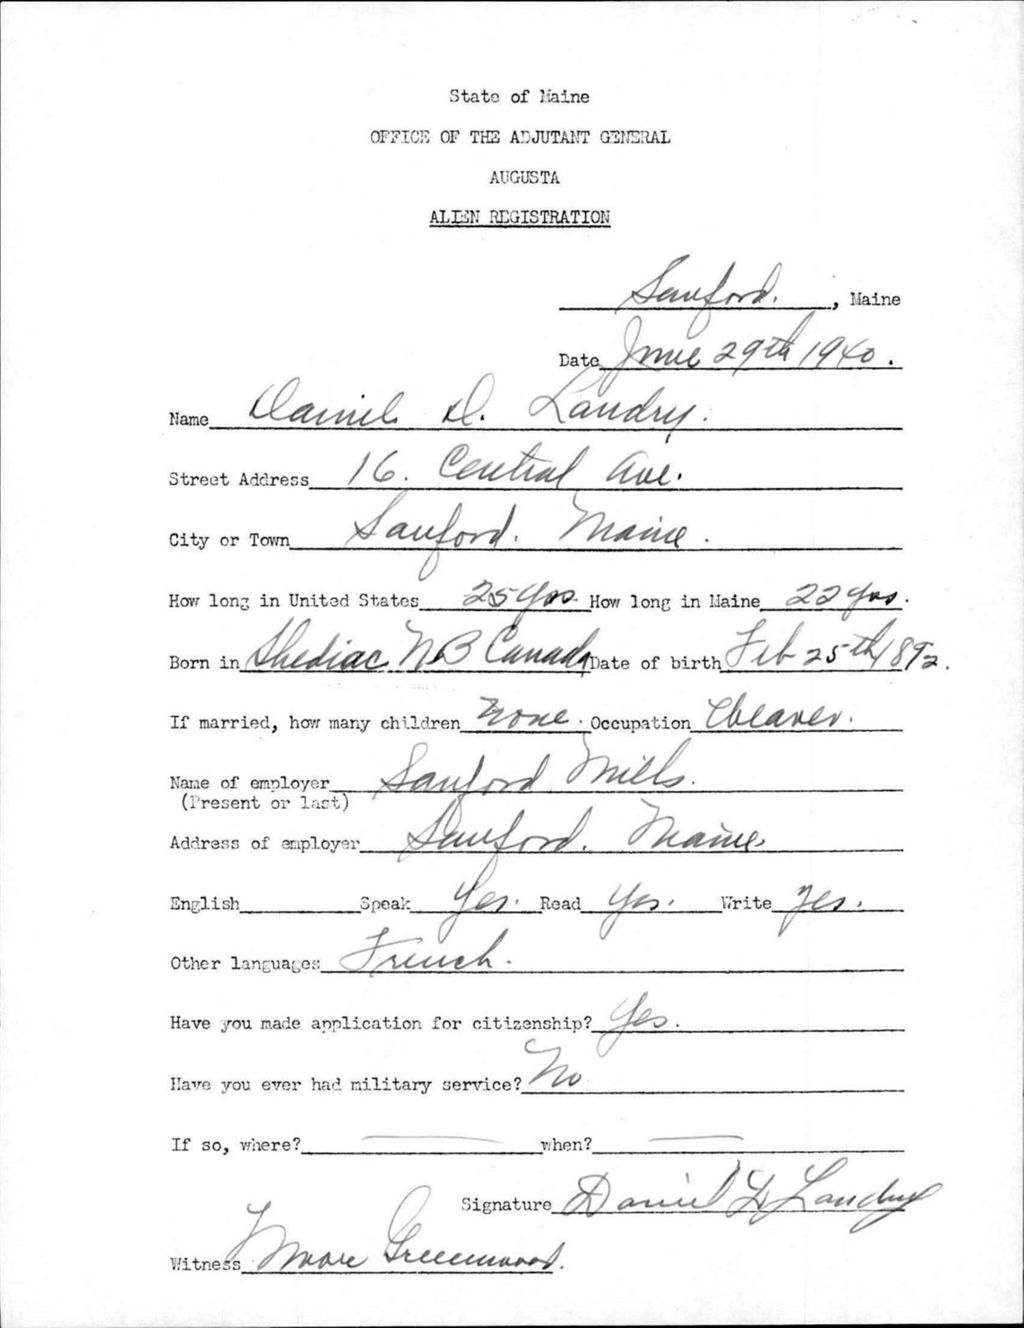 State of Maine
OFFICE OF THE ADJUTANT GENERAL
AUGUSTA
ALIEN REGISTRATION
Sanford. , Maine
Date June 29th 1940.
Name Daniel D. Landry.
Street Address 16. Central Ave.
City or Town Sanford. Maine.
How long in United States 25 yrs. How long in Maine 22 yrs.
Born in Shediac NB Canada Date of birth Feb 25th 1892.
If married, how many children none. Occupation Weaver.
Name of employer Sanford Mills.
(Present or last)
Address of employer Sanford. Maine.
English Speak Yes. Read Yes. Write Yes.
Other languages French.
Have you made application for citizenship? Yes.
Have you ever had military service? No
If so, where? when?
Signature Daniel D Landry
Witness Greenwood.